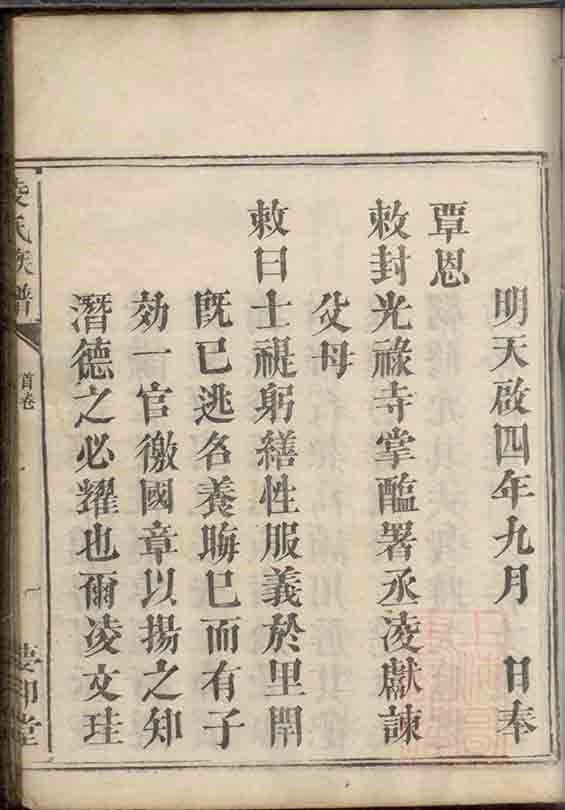 明天啟四年九月 日奉
覃恩
敕封光祿寺掌醢署丞淩獻諫
父母
敕曰士禔躬繕性服義於里閈
旣已逃名養晦已而有子
効一官徼國章以揚之知
潛德之必耀也爾淩文珪
淩氏族譜
首卷